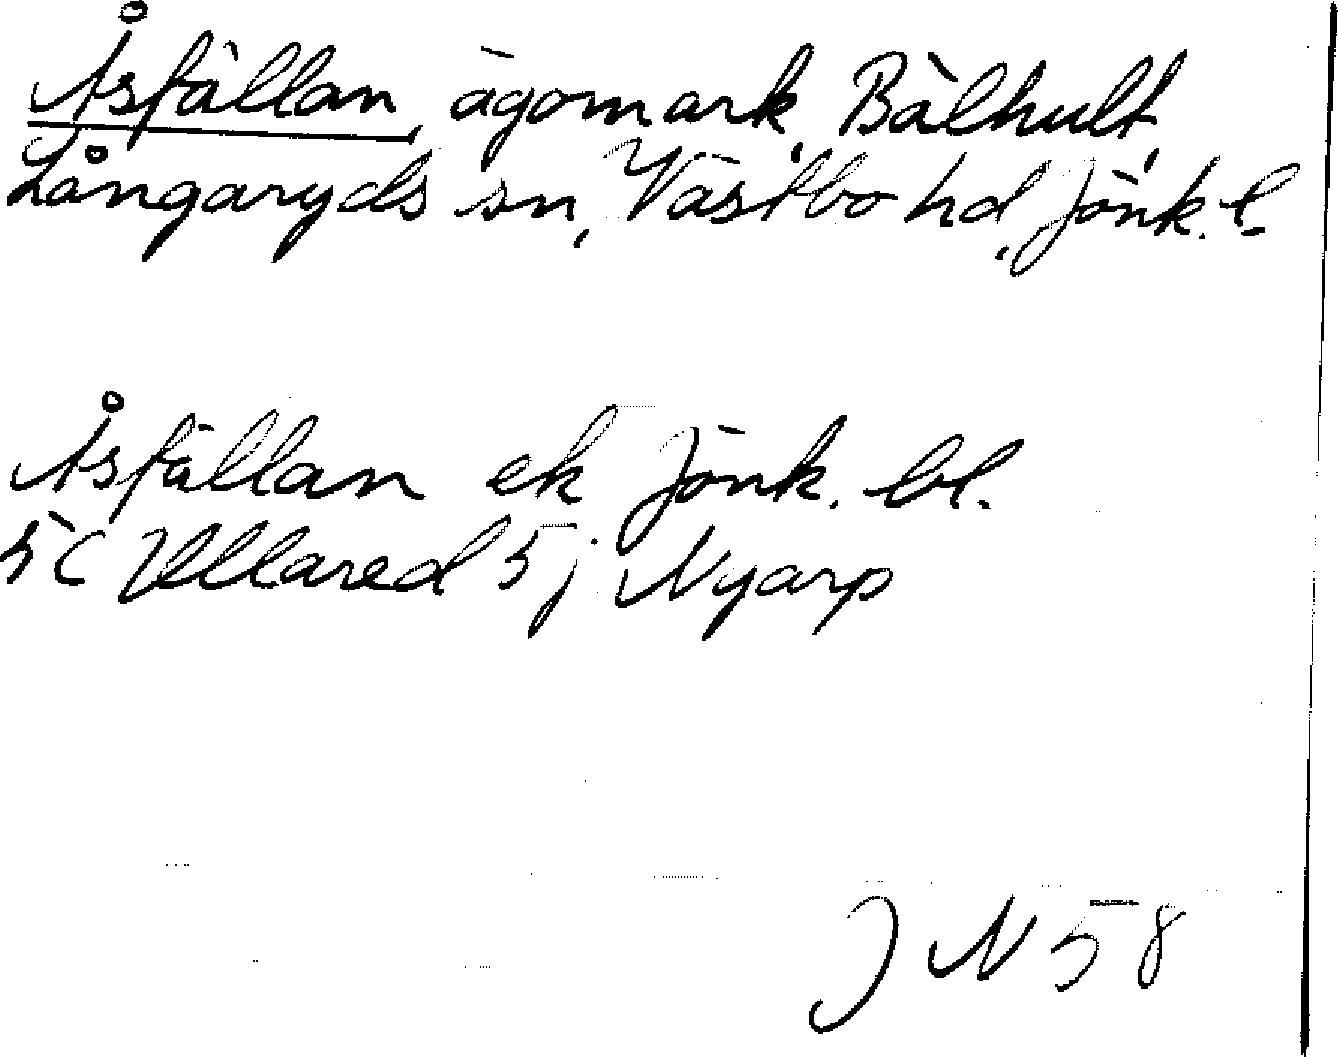 Åsfällan, ägomark, Bälhult,
Långaryds sn, Västbo hd, Jönk. l.
Åsfällan ek Jönk. bl.
5C Ullared 5j Nyarp
J N 58